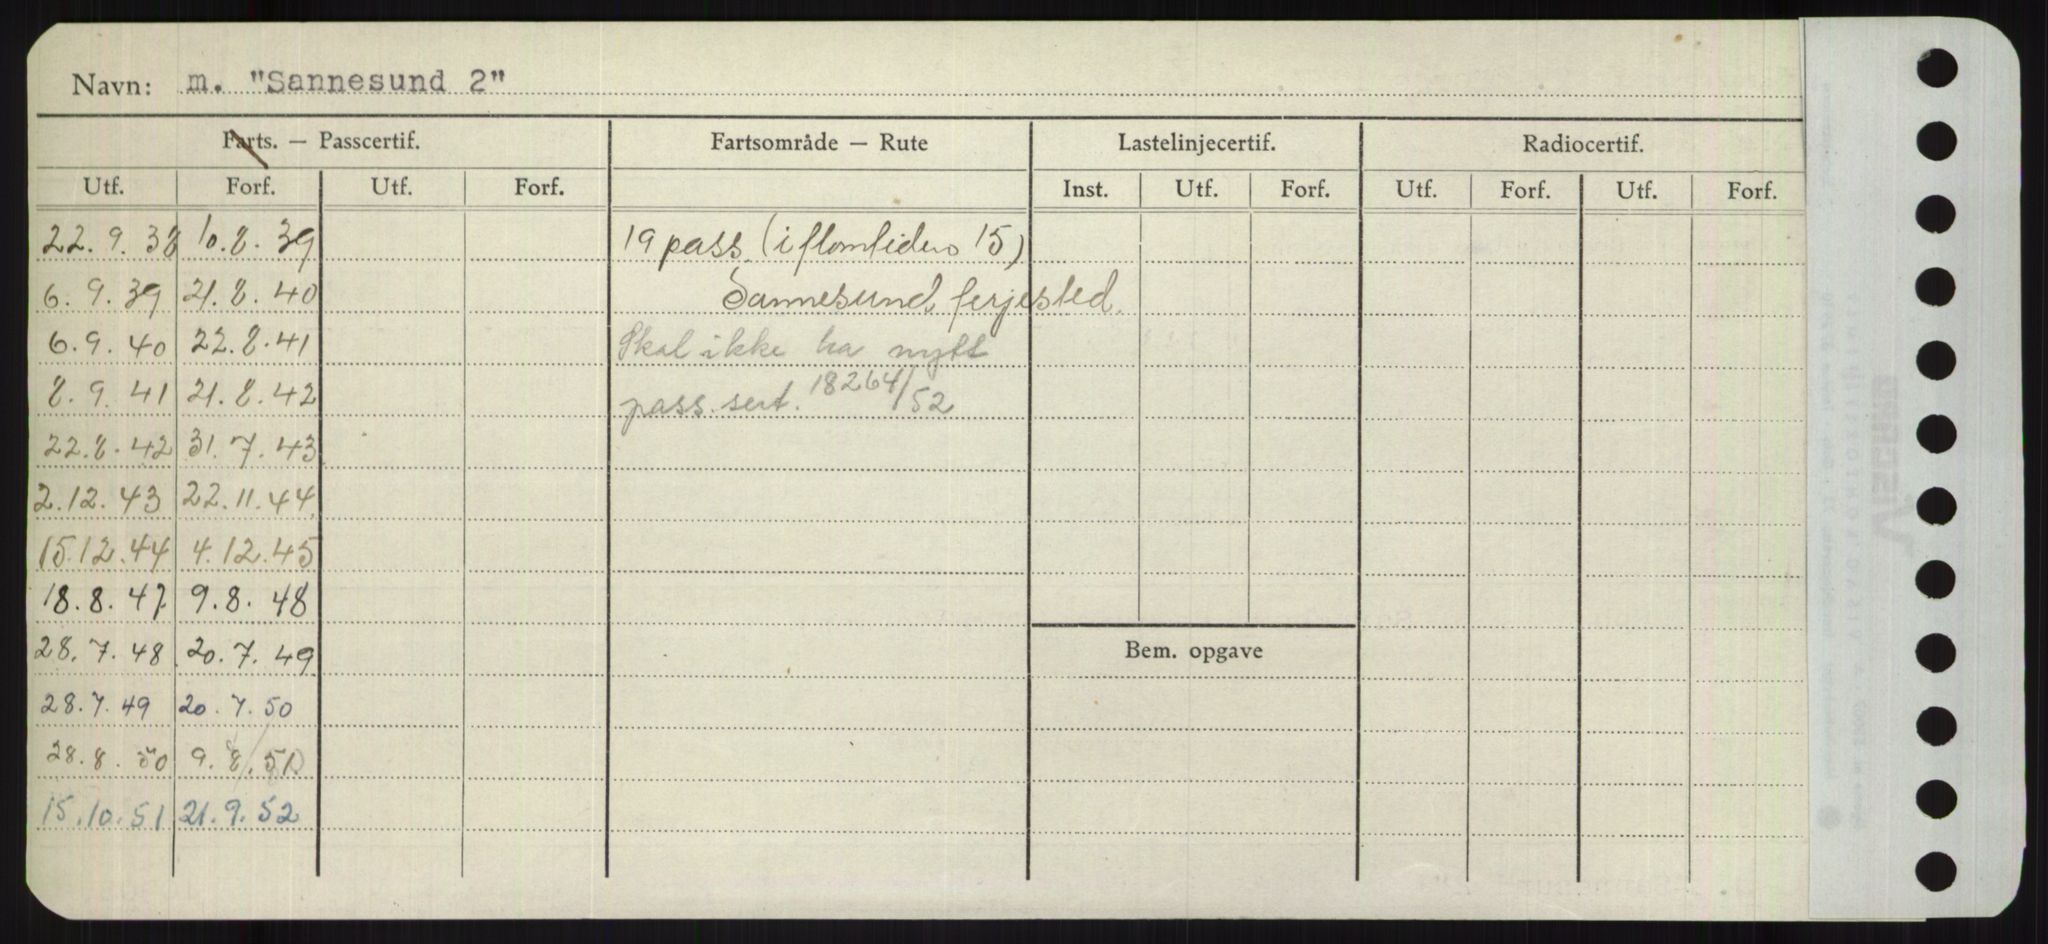 Navn: m. "Sannesund 2"
Farts. — Passcertif. Fartsområde — Rute Lastelinjecertif. Radiocertif.
Utf. Forf. Utf. Forf. Inst. Utf. Forf. Utf. Forf. Utf. Forf.
22.9.38 10.8.39 19 pass. (i flomtiden 15)
6.9.39 21.8.40 Sannesund ferjested.
6.9.40 22.8.41 Skal ikke ha nytt
8.9.41 21.8.42 pass.sert. 18264/52
22.8.42 31.7.43
2.12.43 22.11.44
15.12.44 4.12.45
18.8.47 9.8.48
28.7.48 20.7.49
Bem. opgave
28.7.49 20.7.50
28.8.50 9.8.51
15.10.51 21.9.52